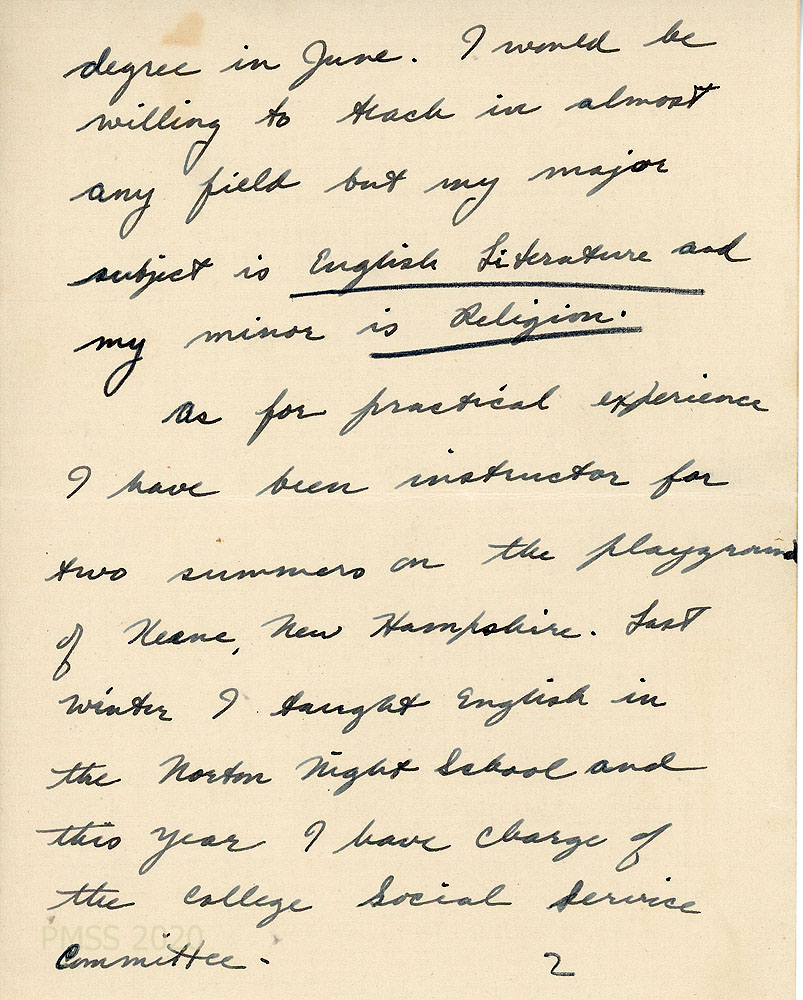 degree in June. I would be
willing to teach in almost
any field but my major
subject is English Literature and
my minor is Religion.
As for practical experience
I have been instructor for
two summers on the playground
of Keene, New Hampshire. Last
winter I taught English in
the Norton Night School and
this year I have charge of
the College Social Service
PMSS 2020
Committee.
2